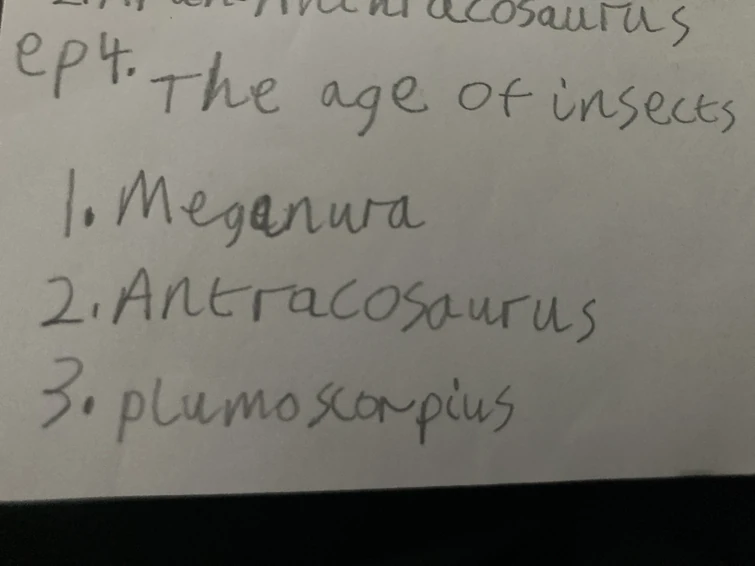 ep4. The age of insects
1. Meganura
2. Antracosaurus
3. plumoscorpius